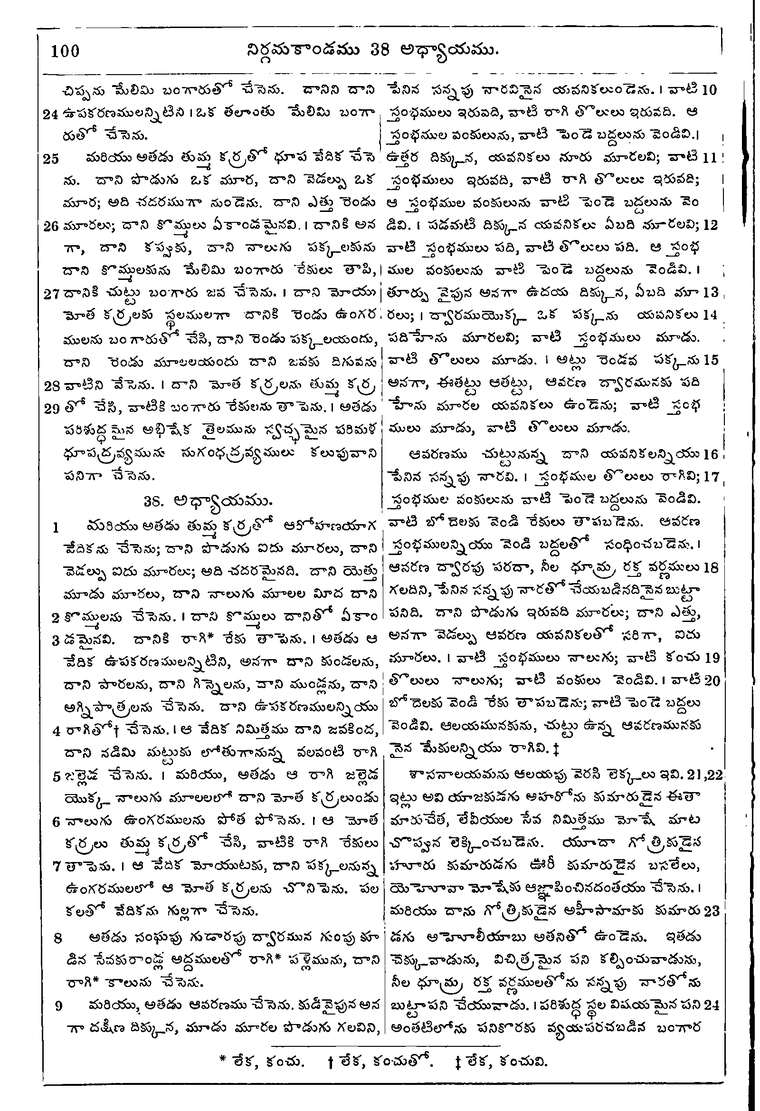 100
నిర్గమకాండము 38 అధ్యాయము.
చిప్పను మేలిమి బంగారుతో చేసెను. దానిని దాని
24 ఉపకరణములన్నిటిని। ఒక తలాంతు మేలిమి బంగా
రుతో చేసెను.
25 మరియు అతడు తుమ్మ కర్రతో ధూప వేదిక చేసె
ను. దాని పొడుగు ఒక మూర, దాని వెడల్పు ఒక
మూర; అది చదరముగా నుండెను. దాని ఎత్తు రెండు
26 మూరలు; దాని కొమ్ములు ఏకాండమైనవి.। దానికి అన
గా, దాని కప్పుకు, దాని నాలుగు పక్కలకును
దాని కొమ్ములకును మేలిమి బంగారు రేకులు తాపి,
27 దానికి చుట్టు బంగారు జవ చేసెను. । దాని మోయు
మోత కర్రలకు స్థలములుగా దానికి రెండు ఉంగర
ములను బంగారుతో చేసి, దాని రెండు పక్కలయందు,
దాని రెండు మూలలయందు దాని జవకు దిగువను
28 వాటిని వేసెను. । దాని మోత కర్రలను తుమ్మ కర్ర
29 తో చేసి, వాటికి బంగారు రేకులను తాపెను. । అతడు
పరిశుద్ధమైన అభిషేక తైలమును స్వచ్ఛమైన పరిమళ
ధూపద్రవ్యమును సుగంధద్రవ్యములు కలుపువాని
పనిగా చేసెను.
38. అధ్యాయము.
1 మరియు అతడు తుమ్మ కర్రతో ఆరోహణయాగ
వేదికను చేసెను; దాని పొడుగు ఐదు మూరలు, దాని
వెడల్పు ఐదు మూరలు; అది చదరమైనది. దాని యెత్తు
మూడు మూరలు, దాని నాలుగు మూలల మీద దాని
2 కొమ్ములను చేసెను. । దాని కొమ్ములు దానితో ఏకాం
3 డమైనవి. దానికి రాగి* రేకు తాపెను. । అతడు ఆ
వేదిక ఉపకరణములన్నిటిని, అనగా దాని కుండలను,
దాని పారలను, దాని గిన్నెలను, దాని ముండ్లను, దాని
అగ్నిపాత్రలను చేసెను. దాని ఉపకరణములన్నియు
4 రాగితో† చేసెను. । ఆ వేదిక నిమిత్తము దాని జవకింద,
దాని నడిమి మట్టుకు లోతుగానున్న వలవంటి రాగి
5 జల్లెడ చేసెను. । మరియు, అతడు ఆ రాగి జల్లెడ
యొక్క నాలుగు మూలలలో దాని మోత కర్రలుండు
6 నాలుగు ఉంగరములను పోత పోసెను. । ఆ మోత
కర్రలు తుమ్మ కర్రతో చేసి, వాటికి రాగి రేకులు
7 తాపెను. । ఆ వేదిక మోయుటకు, దాని పక్కలనున్న
ఉంగరములలో ఆ మోత కర్రలను చొనిపెను. పల
కలతో వేదికను గుల్లగా చేసెను.
8 అతడు సంఘపు గుడారపు ద్వారమున గుంపు కూ
డిన సేవకురాండ్ల అద్దములతో రాగి* పళ్లెమును, దాని
రాగి* కాలును చేసెను.
9 మరియు, అతడు ఆవరణము చేసెను. కుడివైపున అన
గా దక్షిణ దిక్కున, మూడు మూరల పొడుగు గలవిని,
పేనిన సన్నపు నారవినైన యవనికలుండెను. । వాటి 10
స్తంభములు ఇరువది, వాటి రాగి తొలులు ఇరువది. ఆ
స్తంభముల వంకులును, వాటి పెండె బద్దలును వెండివి.।
ఉత్తర దిక్కున, యవనికలు నూరు మూరలవి; వాటి 11
స్తంభములు ఇరువది, వాటి రాగి తొలులు ఇరువది;
ఆ స్తంభముల వంకులును వాటి పెండె బద్దలును వెం
డివి. । పడమటి దిక్కున యవనికలు ఏబది మూరలవి; 12
వాటి స్తంభములు పది, వాటి తొలులు పది. ఆ స్తంభ
ముల వంకులును వాటి పెండె బద్దలును వెండివి. ।
తూర్పు వైపున అనగా ఉదయ దిక్కున, ఏబది మూ 13
రలు; । ద్వారముయొక్క ఒక పక్కను యవనికలు 14
పదిహేను మూరలవి; వాటి స్తంభములు మూడు.
వాటి తొలులు మూడు. । అట్లు రెండవ పక్కను 15
అనగా, ఈతట్టు ఆతట్టు, ఆవరణ ద్వారమునకు పది
హేను మూరల యవనికలు ఉండెను; వాటి స్తంభ
ములు మూడు, వాటి తొలులు మూడు.
ఆవరణము చుట్టునున్న దాని యవనికలన్నియు 16
పేనిన సన్నపు నారవి. । స్తంభముల తొలులు రాగివి; 17
స్తంభముల వంకులును వాటి పెండె బద్దలును వెండివి.
వాటి బోదెలకు వెండి రేకులు తాపబడెను. ఆవరణ
స్తంభములన్నియు వెండి బద్దలతో సంధించబడెను. ।
ఆవరణ ద్వారపు పరదా, నీల ధూమ్ర రక్త వర్ణములు 18
గలదిని, పేనిన సన్నపు నారతో చేయబడినదినైన బుట్టా
పనిది. దాని పొడుగు ఇరువది మూరలు; దాని ఎత్తు,
అనగా వెడల్పు ఆవరణ యవనికలతో సరిగా, ఐదు
మూరలు. । వాటి స్తంభములు నాలుగు; వాటి కంచు 19
తొలులు నాలుగు; వాటి వంకులు వెండివి. । వాటి 20
బోదెలకు వెండి రేకు తాపబడెను; వాటి పెండె బద్దలు
వెండివి. ఆలయమునకును, చుట్టు ఉన్న ఆవరణమునకు
నైన మేకులన్నియు రాగివి. ‡
శాసనాలయమను ఆలయపు వెరసి లెక్కలు ఇవి. 21,22
ఇట్లు అవి యాజకుడగు అహరోను కుమారుడైన ఈతా
మారుచేత, లేవీయుల సేవ నిమిత్తము మోషే మాట
చొప్పున లెక్కించబడెను. యూదా గోత్రికుడైన
హూరు కుమారుడగు ఊరీ కుమారుడైన బసలేలు,
యెహోవా మోషేకు ఆజ్ఞాపించినదంతయు చేసెను. ।
మరియు దాను గోత్రికుడైన అహీసామాకు కుమారు 23
డగు అహొలీయాబు అతనితో ఉండెను. ఇతడు
చెక్కువాడును, విచిత్రమైన పని కల్పించువాడును,
నీల ధూమ్ర రక్త వర్ణములతోను సన్నపు నారతోను
బుట్టాపని చేయువాడు. । పరిశుద్ధ స్థల విషయమైన పని 24
అంతటిలోను పనికొరకు వ్యయపరచబడిన బంగార
* లేక, కంచు. † లేక, కంచుతో. ‡ లేక, కంచువి.